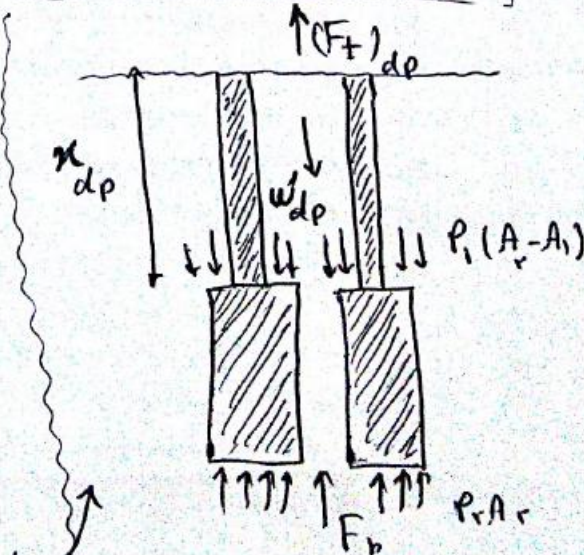 (F_t)_dp
x_dp
w'_dp
P_1(A_r-A_1)
P_rA_r
F_b